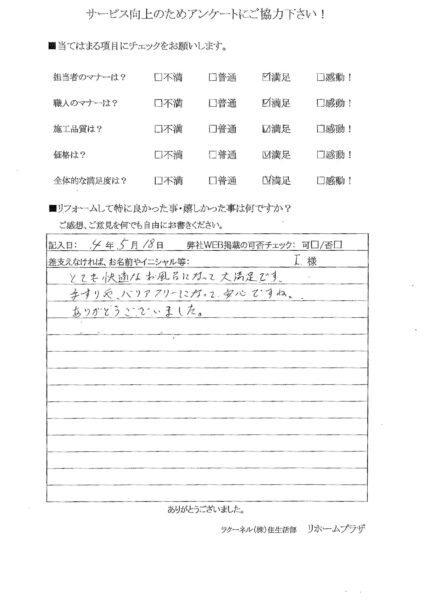 サービス向上のためアンケートにご協力下さい！
■当てはまる項目にチェックをお願いします。
担当者のマナーは？ □不満 □普通 ☑満足 □感動！
職人のマナーは？ □不満 □普通 ☑満足 □感動！
施工品質は？ □不満 □普通 ☑満足 □感動！
価格は？ □不満 □普通 ☑満足 □感動！
全体的な満足度は？ □不満 □普通 ☑満足 □感動！
■リフォームして特に良かった事・嬉しかった事は何ですか？
ご感想、ご意見を何でも自由にお書きください。
記入日： 4年 5月 18日 弊社WEB掲載の可否チェック： 可□/否□
差支えなければ、お名前やイニシャル等： I. 様
とても快適なお風呂になって大満足です。
手すりや、バリアフリーになって、安心ですね。
ありがとうございました。
ありがとうございました。
ラクーネル（株）住生活部 リホームプラザ